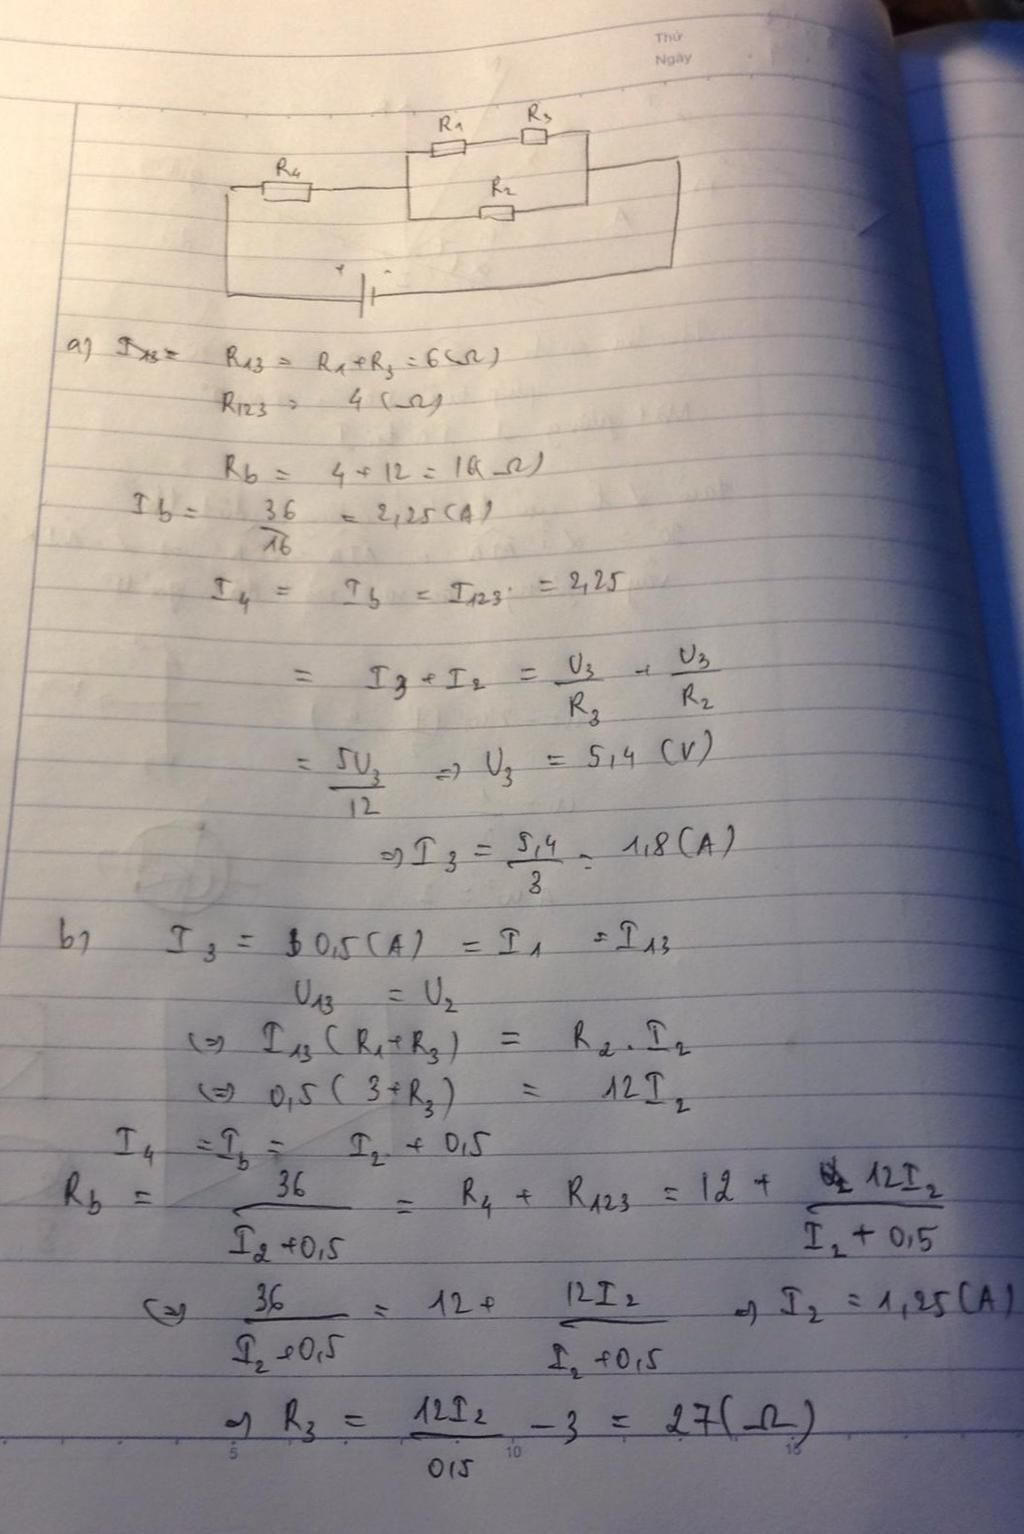 Thứ
Ngày
R1 R3
R4
R2
+ -
a) I13 = R13 = R1 + R3 = 6(Ω)
R123 = 4 (Ω)
Rb = 4 + 12 = 16(Ω)
Ib = 36/16 = 2,25(A)
I4 = Ib = I123 = 2,25
= I3 + I2 = U3/R3 + U3/R2
= 5U3/12 => U3 = 5,4 (V)
=> I3 = 5,4/3 = 1,8(A)
b) I3 = 0,5(A) = I1 = I13
U13 = U2
<=> I13(R1+R3) = R2.I2
<=> 0,5(3+R3) = 12I2
I4 = Ib = I2 + 0,5
Rb = 36/(I2+0,5) = R4 + R123 = 12 + 12I2/(I2+0,5)
<=> 36/(I2+0,5) = 12 + 12I2/(I2+0,5) => I2 = 1,25(A)
=> R3 = 12I2/0,5 - 3 = 27(Ω)
5 10 15